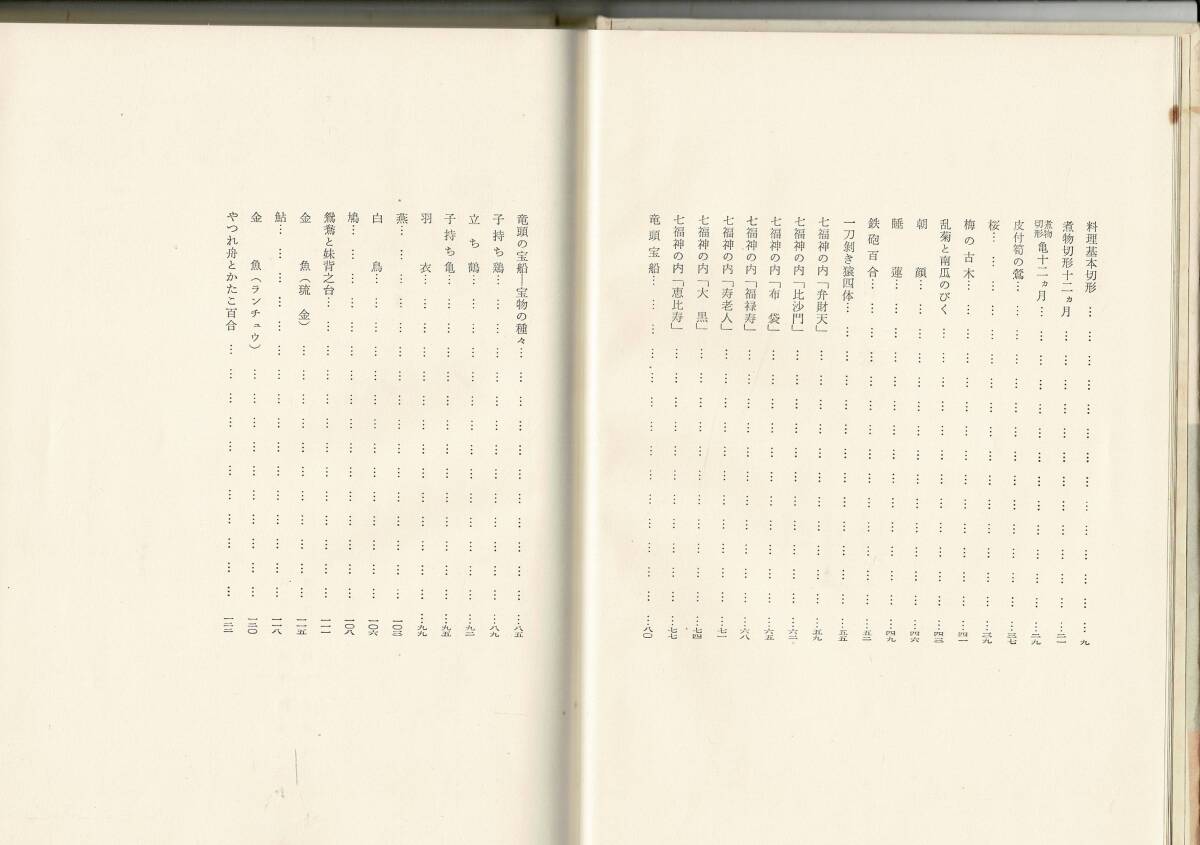 料理基本切形……………九
煮物切形十二ヵ月……………二一
煮物切形 亀十二ヵ月……………二九
皮付筍の鶯……………三七
桜……………三九
梅の古木……………四一
乱菊と南瓜のびく……………四三
朝顔……………四六
睡蓮……………四九
鉄砲百合……………五二
一刀剝き猿四体……………五五
七福神の内「弁財天」……………五九
七福神の内「比沙門」……………六二
七福神の内「布袋」……………六五
七福神の内「福禄寿」……………六八
七福神の内「寿老人」……………七一
七福神の内「大黒」……………七四
七福神の内「恵比寿」……………七七
竜頭宝船……………八〇
竜頭の宝船―宝物の種々……………八五
子持ち鶏……………八九
立ち鶴……………九二
子持ち亀……………九五
羽衣……………九九
燕……………一〇三
白鳥……………一〇六
鳩……………一〇八
鴛鴦と妹背之台……………一一一
金魚(琉金)……………一一五
鮎……………一一八
金魚(ランチュウ)……………一二〇
やつれ舟とかたこ百合……………一二二